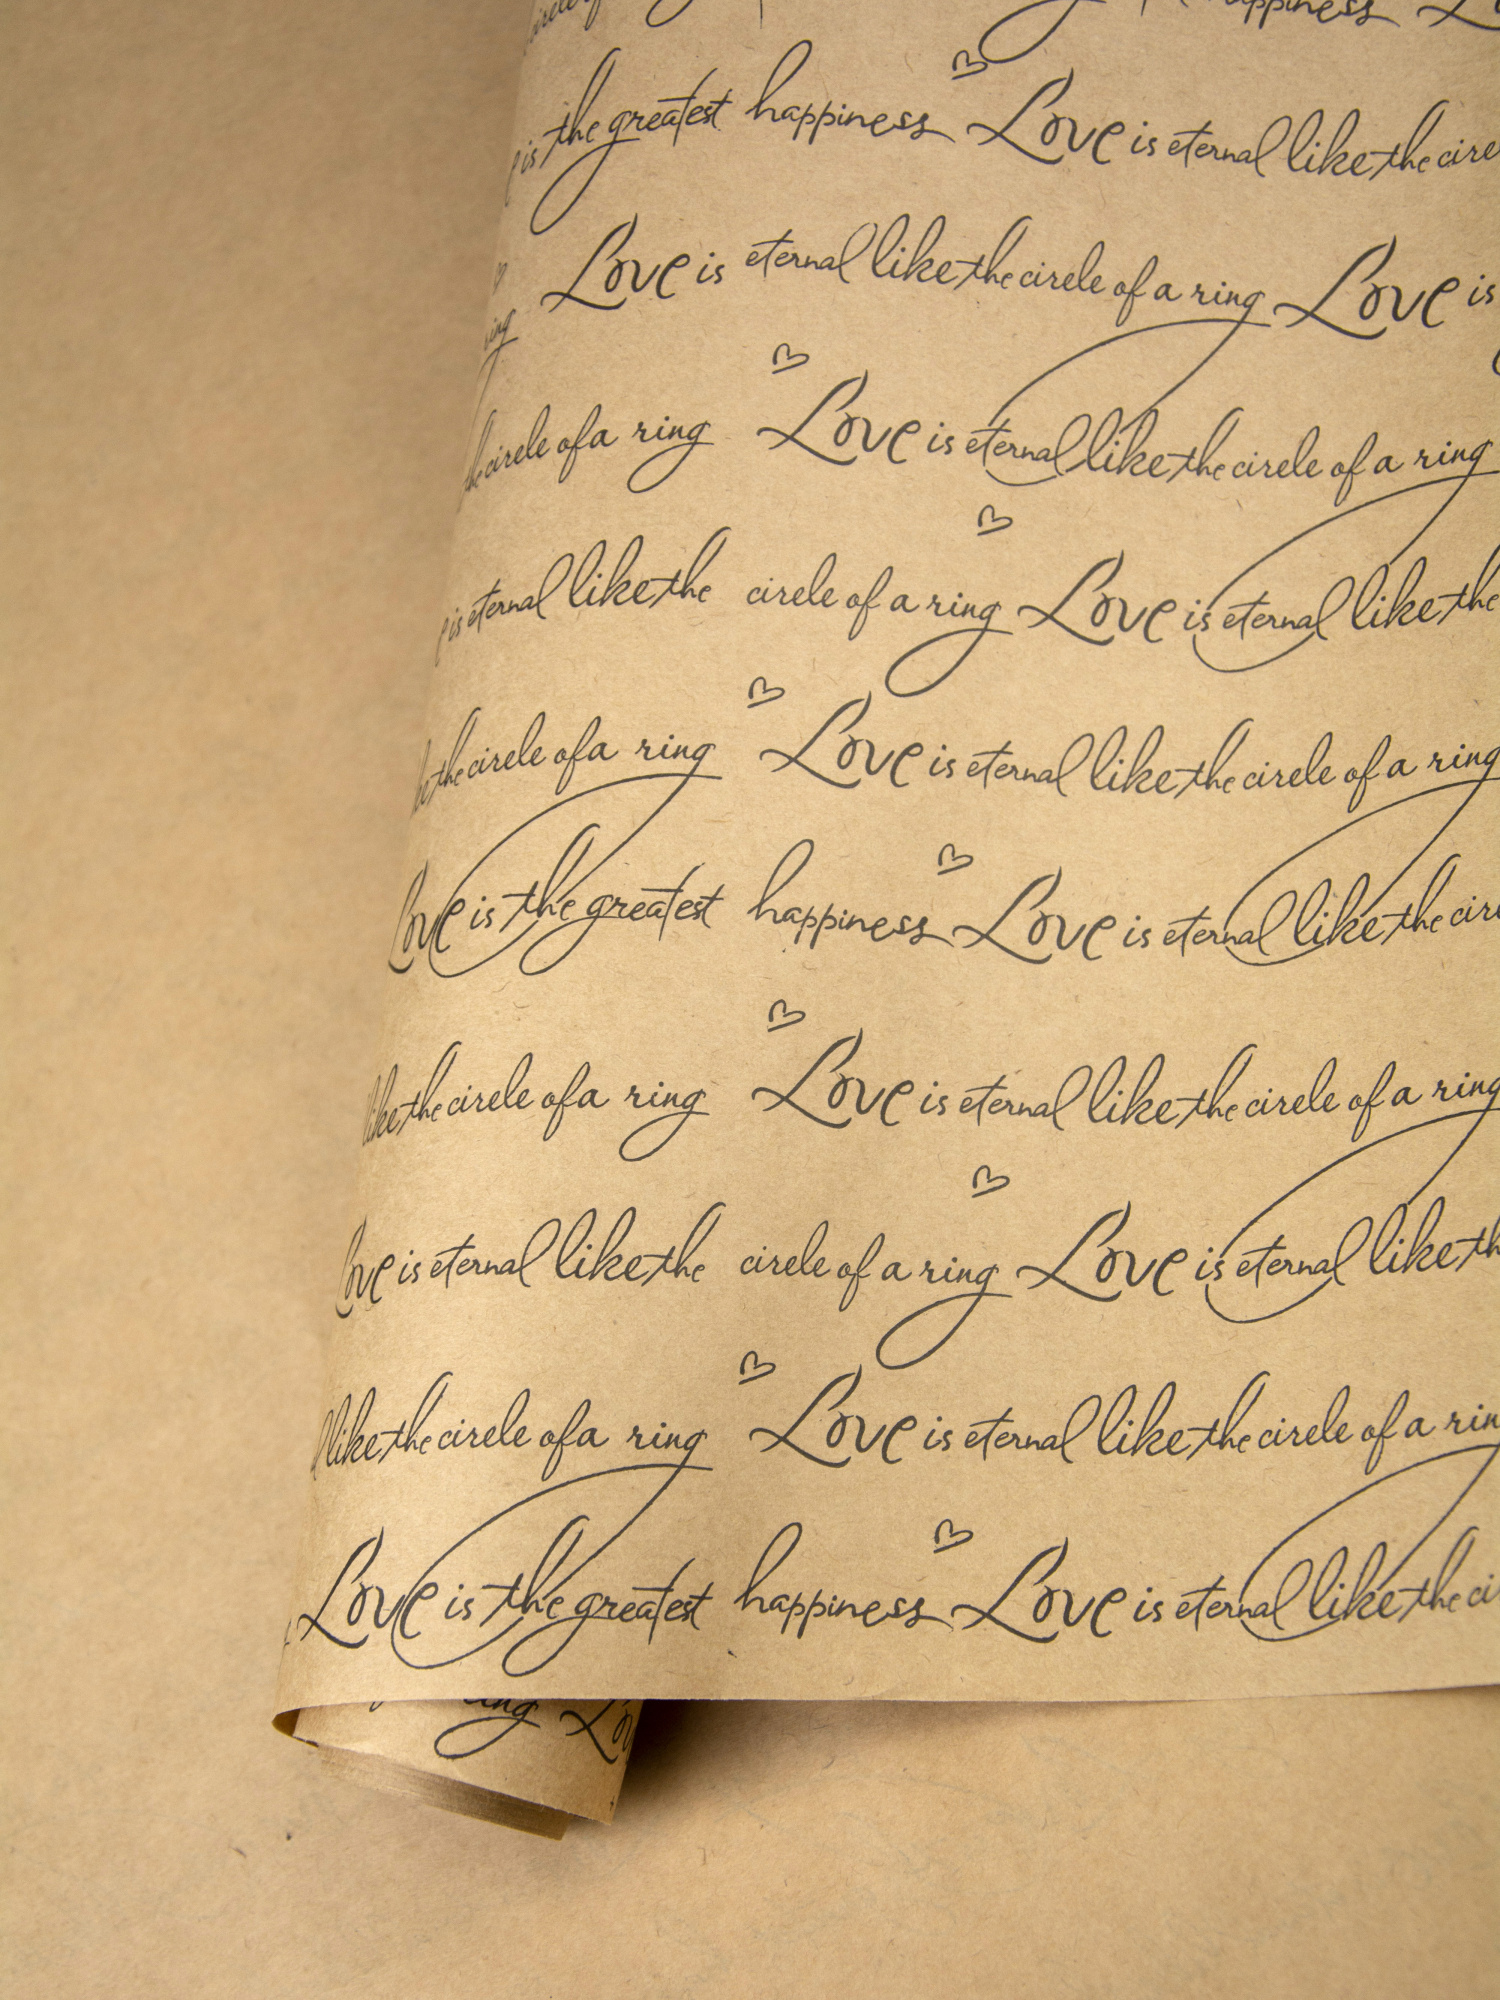 happiness
is the greatest happiness Love is eternal like the
Love is eternal like the circle of a ring Love is
the circle of a ring Love is eternal like the circle of a ring
is eternal like the circle of a ring Love is eternal like the
the circle of a ring Love is eternal like the circle of a ring
Love is the greatest happiness Love is eternal like the
like the circle of a ring Love is eternal like the circle of a ring
Love is eternal like the circle of a ring Love is eternal like
like the circle of a ring Love is eternal like the circle of a
Love is the greatest happiness Love is eternal like the